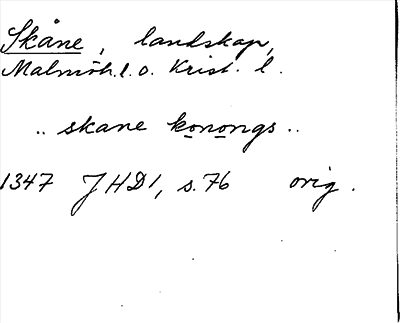 Skåne, landskap,
Malmöh. l. o. Krist. l.
.. skane konongs ..
1347 JHD 1, s. 76 orig.